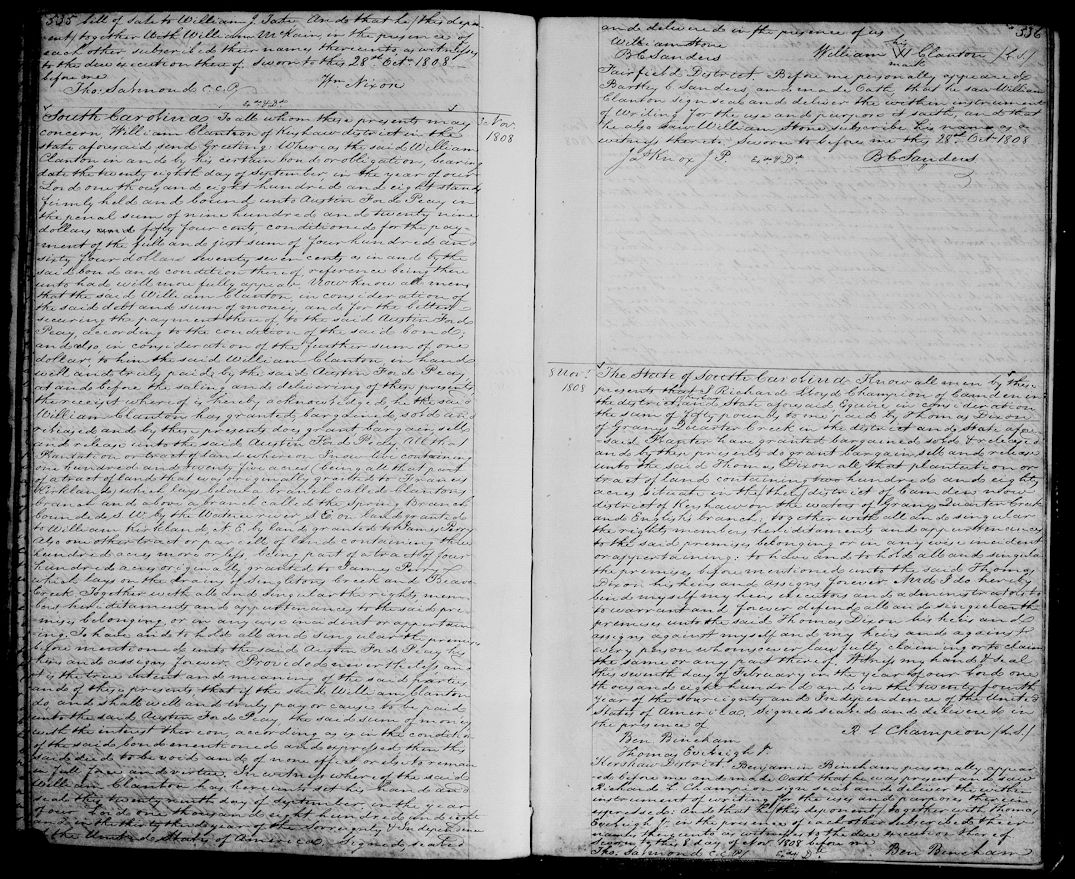 335 bill of sale to William J. Tate And that he (this depo-
nent) together with William McKain, in the presence of
each other subscribed their names thereunto, as witnesses
to the due execution thereof. Sworn to this 28th Oct. 1808
before me
Tho. Salmond C.C.P. Wm Nixon
South Carolina To all whom these presents may
concern, William Clanton of Kershaw district in the
state aforesaid send Greeting Whereas the said William
Clanton in and by his certain bond or obligation, bearing
date the twenty eighth day of September in the year of our
Lord one thousand eight hundred and eight stands
firmly held and bound unto Austin Ford Peay in
the penal sum of nine hundred and twenty nine
dollars and fifty four cents, conditioned for the pay-
ment of the full and just sum of four hundred and
sixty four dollars seventy seven cents, as in and by the
said bond and condition thereof reference being there
unto had will more fully appear Now know all men
that the said William Clanton, in consideration of
the said debt and sum of money and for the better
securing the payment thereof, to the said Austin Ford
Peay, according to the condition of the said bond;
and also, in consideration of the further sum of one
dollar, to him the said William Clanton, in hand
well and truly paid, by the said Austin Ford Peay
at and before the sealing and delivering of these presents
the receipt whereof is hereby acknowledged, he the said
William Clanton has granted, bargained, sold and
released and by these presents does grant bargain, sell
and release unto the said Austin Ford Peay All that
Plantation or tract of land whereon I now live containing
one hundred and twenty five acres (being all that part
of a tract of land that was originally granted to Francis
Kirkland) which lays below a branch called Clantons
branch and above a branch called the Spring Branch
bounded, S W by the Wateree river S E on land granted
to William Kirkland, N E by land granted to James Perry
also one other tract or parcell of land containing three
hundred acres more or less, being part of a tract of four
hundred acres originally granted to James Perry
which lays on the drains of Singletons Creek and Beaver
Creek Together with all and singular the rights, mem-
bers hereditaments and appurtenances to the said pre-
mises belonging, or in any wise incident or appertain-
ing. To have and to hold all and singular the premises
before mentioned unto the said Austin Ford Peay his
heirs and assigns forever. Provided nevertheless and
it is the true intent and meaning of the said parties
and of these presents that if the said William Clanton
do, and shall well and truly pay or cause to be paid
unto the said Austin Ford Peay, the said sum of money
with the interest thereon, according as is in the condition
of the said bond mentioned and expressed then this
said deed to be void and of none effect or else to remain
in full force and virtue. In witness whereof the said
William Clanton has hereunto set his hand and
seal this twenty ninth day of September in the year
of our Lord one thousand eight hundred and eight
and in the thirty third year of the Sovereignty & Independence
of the United States of America. Signed, sealed
Nov
1808
336
and delivered in the presence of us
William Stone
B C Sanders
William his X mark Clanton (L.S.)
Fairfield District Before me personally appeared
Bartley C Sanders, and made Oath, that he saw William
Clanton sign seal and deliver the within instrument
of Writing for the use and purpose it saith, and that
he also saw William Stone subscribe his name as a
witness thereto. Sworn to before me this 28th Oct 1808
Jas Knox J P B C Sanders
8 Nov.
1808
The State of South Carolina Know all men by these
presents that I Richard Lloyd Champion of Camden in
the district and state aforesaid Esquire in consideration
the sum of fifty pounds to me paid by Thomas Dixon
of Grany Quarter Creek in the district and state afore
-said Planter have granted bargained sold & released
and by these presents do grant bargain sell and release
unto the said Thomas Dixon all that plantation or
tract of land containing two hundred and eighty
acres situate in the (then) district of Camden now
district of Kershaw on the waters of Grany Quarter Creek
and English branch, together with all and singular
the rights members hereditaments and appurtenances
to the said premises belonging or in any wise incident
or appertaining: to have and to hold all and singular
the premises before mentioned unto the said Thomas
Dixon his heirs and assigns forever And I do hereby
bind myself my heirs executors and administrators to
to warrant and forever defend all and singular the
premises unto the said Thomas Dixon his heirs and
assigns against myself and my heirs and against
every person whomsoever lawfully claiming or to claim
the same or any part thereof. Witness my hand & seal
this seventh day of February in the year of our Lord one
thousand eight hundred and in the twenty fourth
year of the sovereignty and Independence of the United
States of America. Signed sealed and delivered in
the presence of
Ben Bineham R L Champion (L.S.)
Thomas Eveleigh Jr
Kershaw District, Benjamin Bineham personally appear-
ed before me and made Oath that he was present and saw
Richard L Champion sign seal and deliver the within
instrument of writing to the uses and purposes therein
expressed. And that he (this deponent) together with Thomas
Eveleigh Jr in the presence of each other subscribed their
names thereunto as witnesses to the due execution thereof
Sworn to this 8 day of Nov 1808 before me
Tho. Salmond C.C.P. Ben Bineham